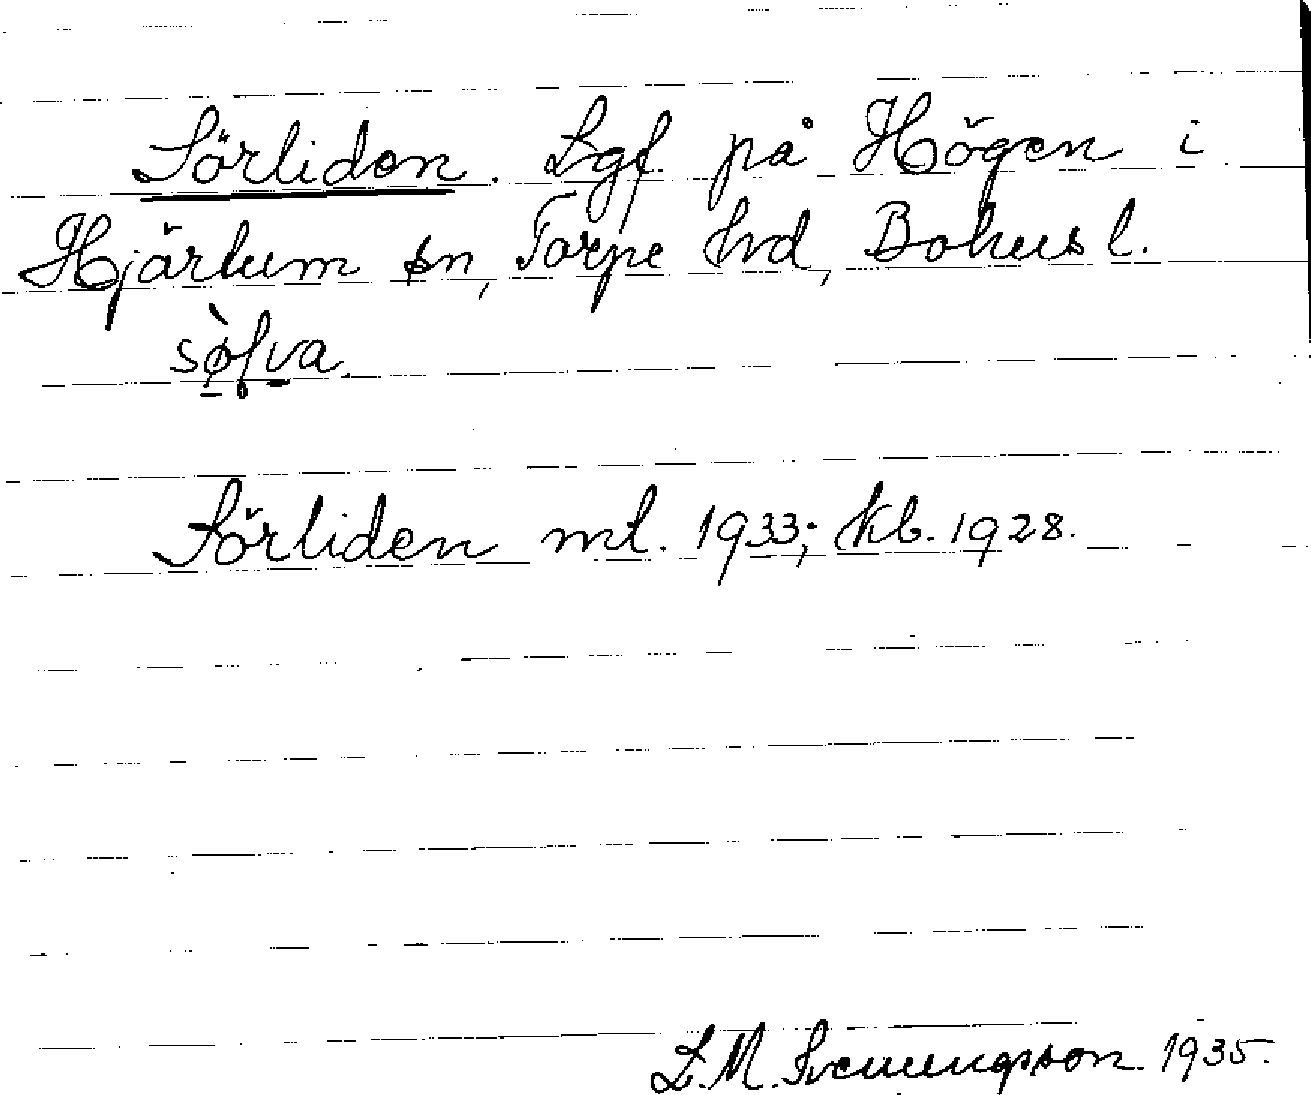 Sörliden. Lgf. på Högen i
Hjärtum sn, Torpe hrd, Bohusl.
Sörliden ml. 1933; kb. 1928.
L.M. Svenungsson 1935.